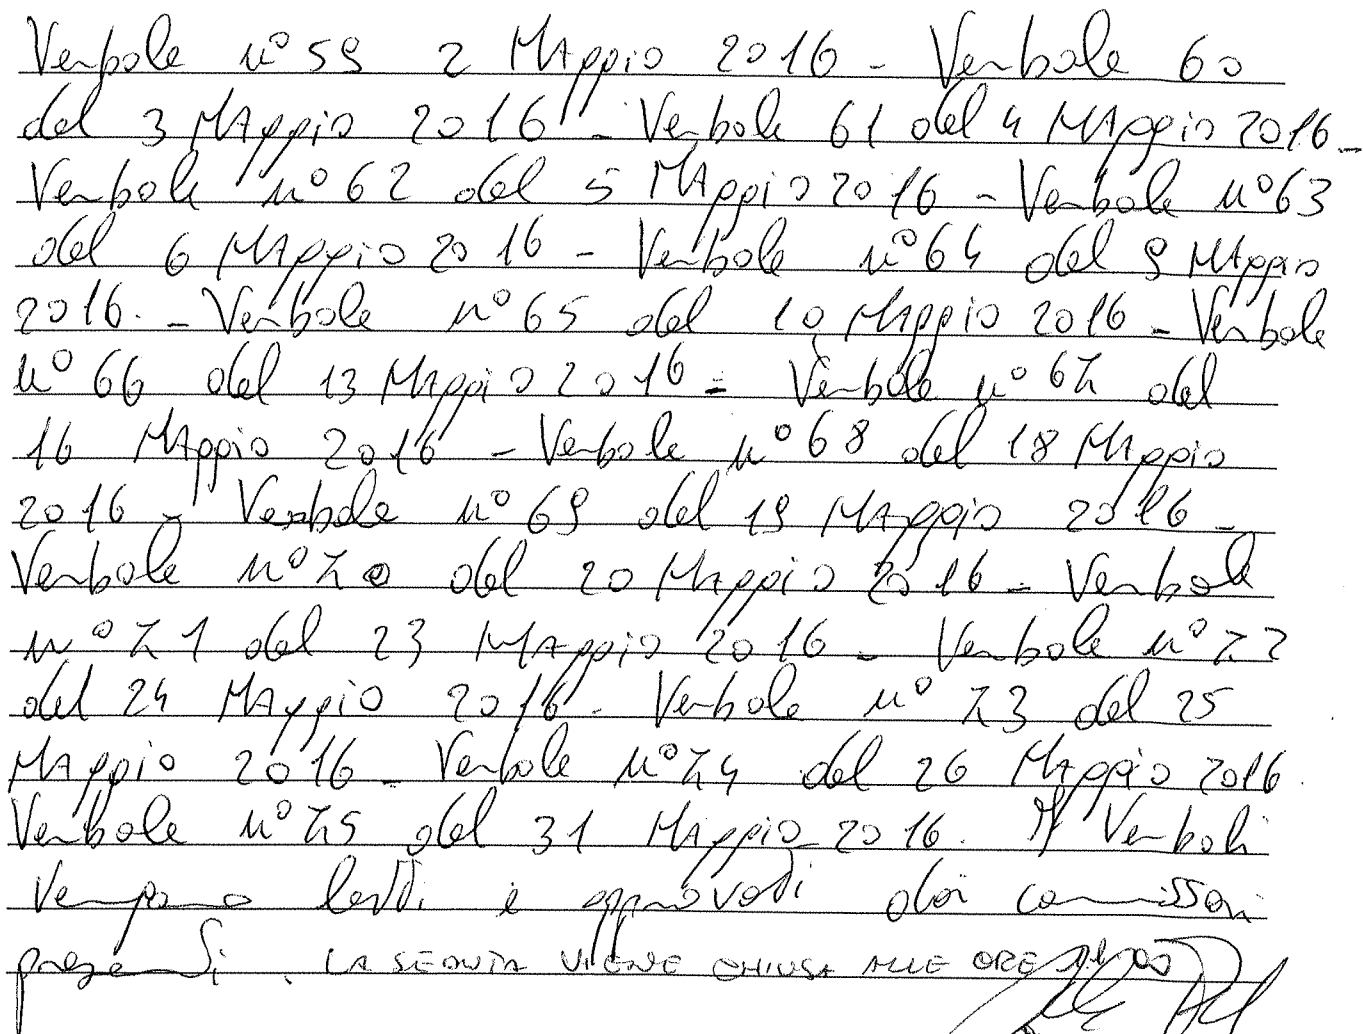 Verbale n° 59 2 Maggio 2016 - Verbale 60
del 3 Maggio 2016 - Verbale 61 del 4 Maggio 2016 -
Verbale n° 62 del 5 Maggio 2016 - Verbale n° 63
del 6 Maggio 2016 - Verbale n° 64 del 9 Maggio
2016. - Verbale n° 65 del 10 Maggio 2016 - Verbale
n° 66 del 13 Maggio 2016 - Verbale n° 67 del
16 Maggio 2016 - Verbale n° 68 del 18 Maggio
2016 - Verbale n° 69 del 19 Maggio 2016 -
Verbale n° 70 del 20 Maggio 2016 - Verbale
n° 71 del 23 Maggio 2016 - Verbale n° 72
del 24 Maggio 2016 - Verbale n° 73 del 25
Maggio 2016 - Verbale n° 74 del 26 Maggio 2016
Verbale n° 75 del 31 Maggio 2016. I Verbali
vengono letti e approvati dai commissari
presenti. LA SEDUTA VIENE CHIUSA ALLE ORE